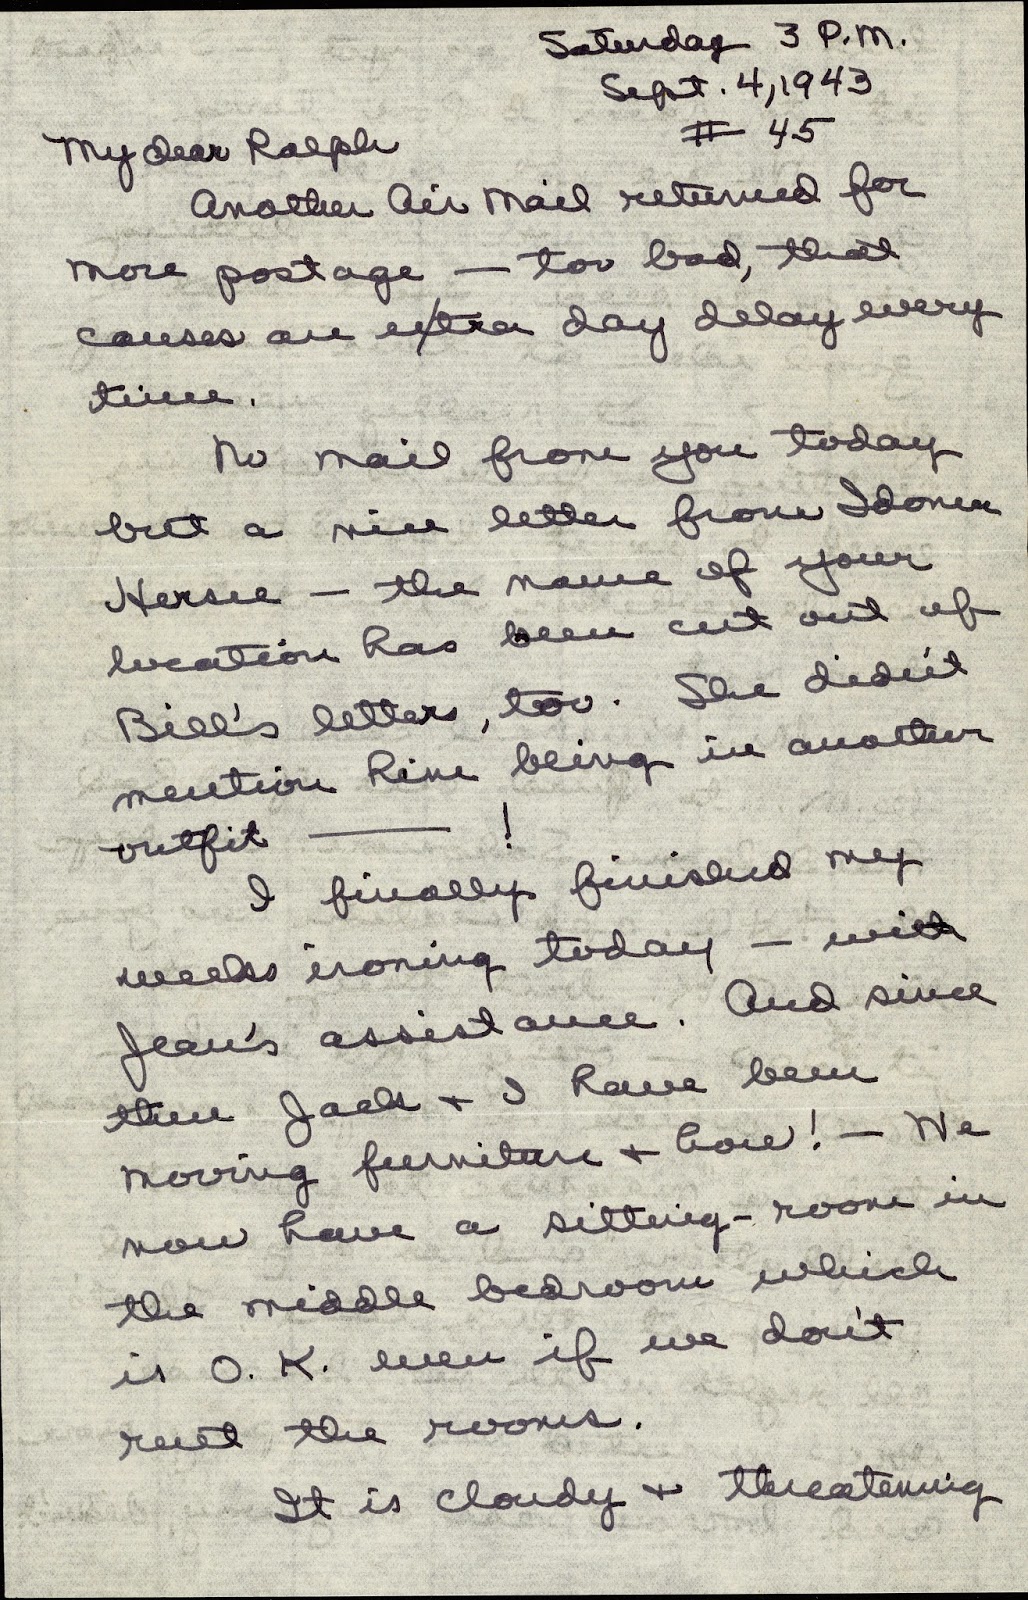 Saturday 3 P.M.
Sept. 4, 1943
# 45
My dear Ralph
Another Air Mail returned for
more postage — too bad, that
causes an extra day delay every
time.
No mail from you today
but a nice letter from Idonea
Hersee — the name of your
location has been cut out of
Bill's letters, too. She didn't
mention him being in another
outfit — !
I finally finished my
weeks ironing today — with
Jean's assistance. And since
then Jack + I have been
moving furniture + how! — We
now have a sitting-room in
the middle bedroom which
is O.K. even if we don't
rent the rooms.
It is cloudy + threatening